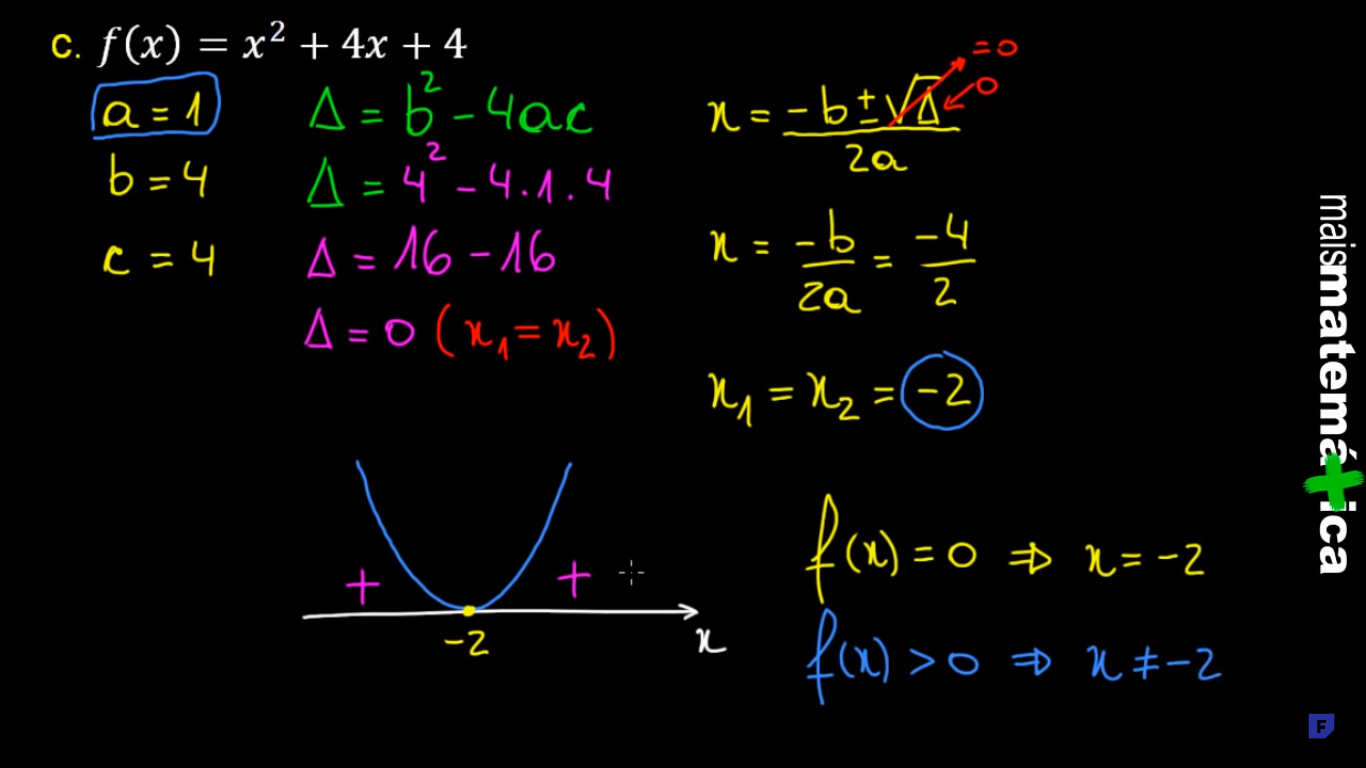 c. f(x) = x² + 4x + 4
a = 1
b = 4
c = 4
Δ = b² - 4ac
Δ = 4² - 4.1.4
Δ = 16 - 16
Δ = 0 (x₁ = x₂)
x = -b ± √Δ / 2a
= 0
0
x = -b / 2a = -4 / 2
x₁ = x₂ = -2
+ +
-2
x
f(x) = 0 ⇒ x = -2
f(x) > 0 ⇒ x ≠ -2
maismatemática
F